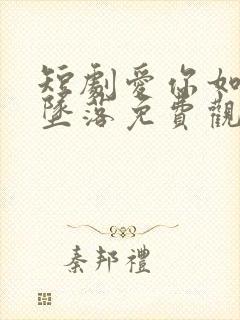 短劇愛你如
墜落免費觀
秦邦禮